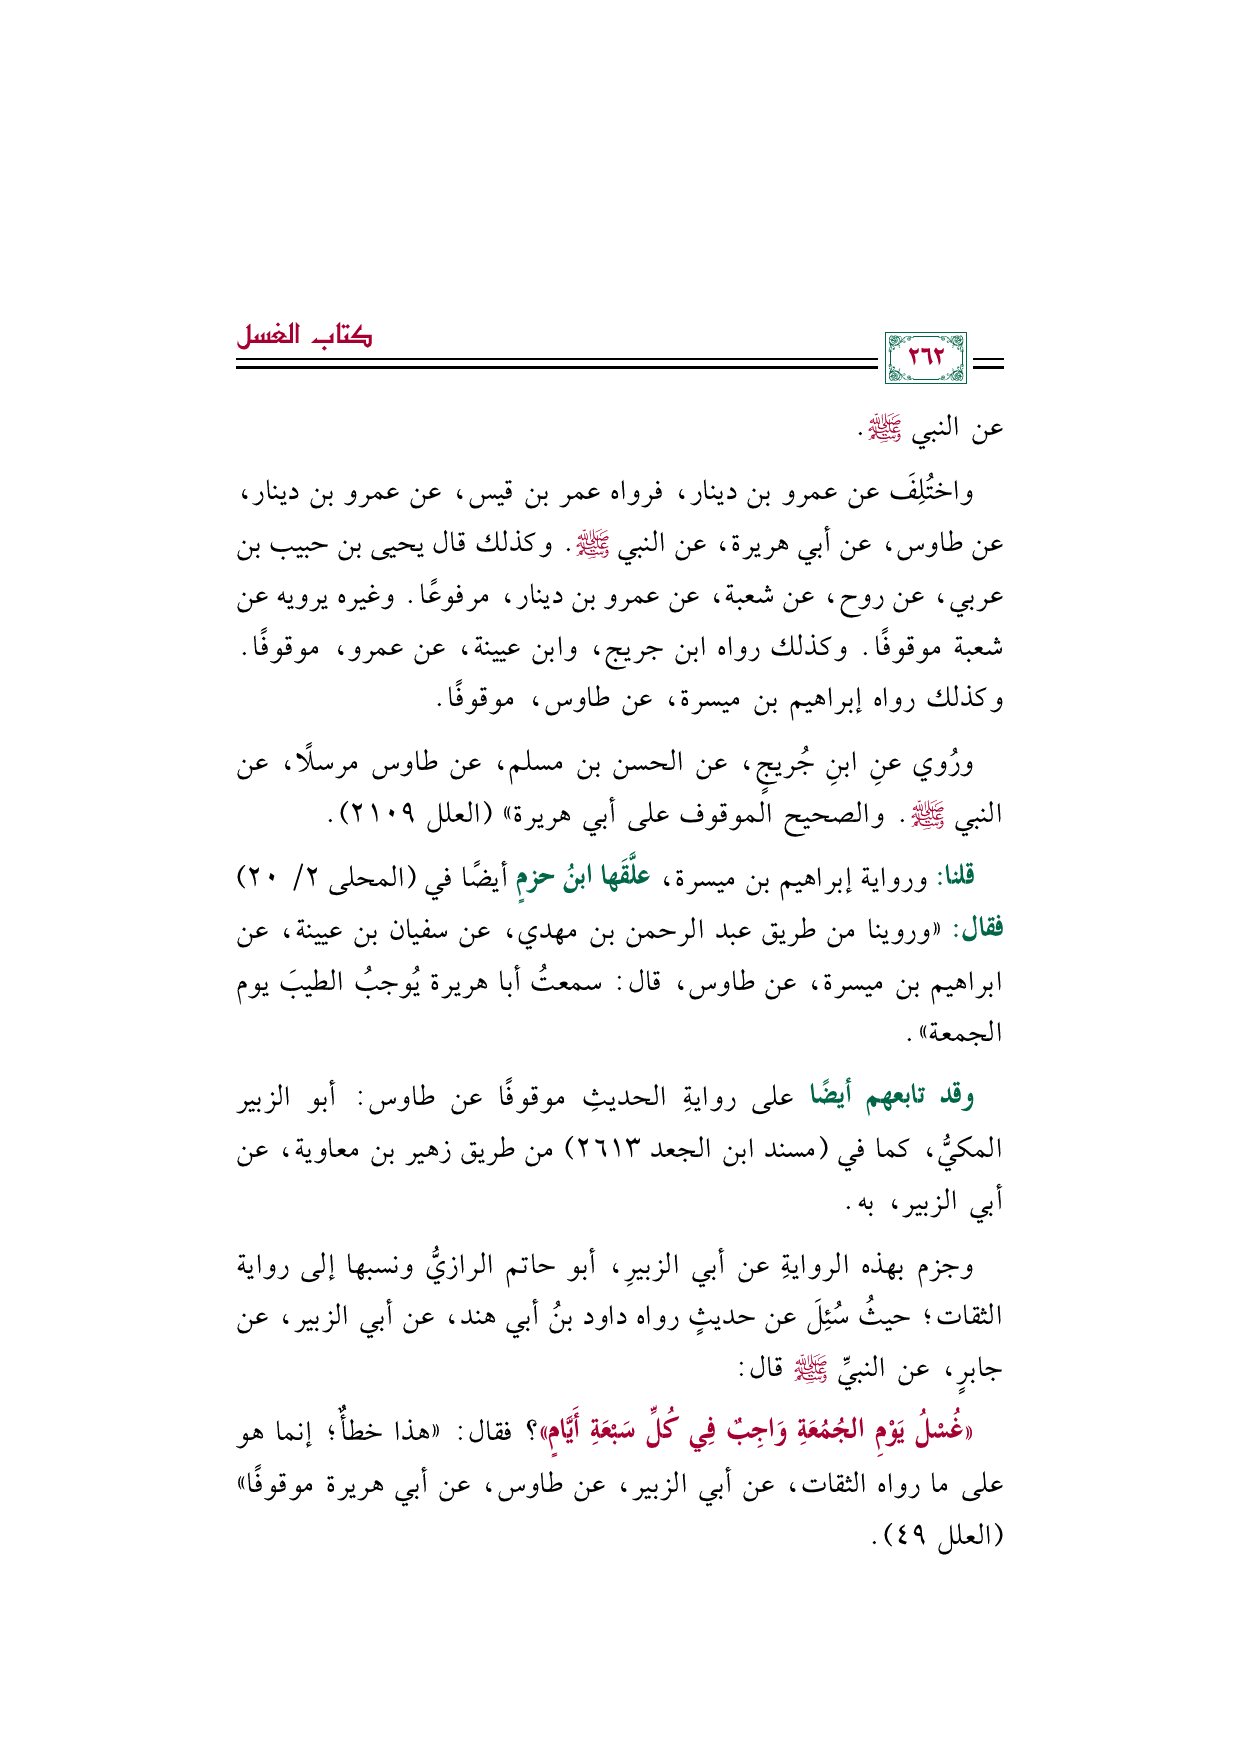 كتاب الغسل
٢٦٢
عن النبي ﷺ.
واختُلِفَ عن عمرو بن دينار، فرواه عمر بن قيس، عن عمرو بن دينار،
عن طاوس، عن أبي هريرة، عن النبي ﷺ. وكذلك قال يحيى بن حبيب بن
عربي، عن روح، عن شعبة، عن عمرو بن دينار، مرفوعًا. وغيره يرويه عن
شعبة موقوفًا. وكذلك رواه ابن جريج، وابن عيينة، عن عمرو، موقوفًا.
وكذلك رواه إبراهيم بن ميسرة، عن طاوس، موقوفًا.
ورُوي عنِ ابنِ جُريجٍ، عن الحسن بن مسلم، عن طاوس مرسلًا، عن
النبي ﷺ. والصحيح الموقوف على أبي هريرة» (العلل ٢١٠٩).
قلنا: ورواية إبراهيم بن ميسرة، علَّقَها ابنُ حزمٍ أيضًا في (المحلى ٢/ ٢٠)
فقال: «وروينا من طريق عبد الرحمن بن مهدي، عن سفيان بن عيينة، عن
ابراهيم بن ميسرة، عن طاوس، قال: سمعتُ أبا هريرة يُوجبُ الطيبَ يوم
الجمعة».
وقد تابعهم أيضًا على روايةِ الحديثِ موقوفًا عن طاوس: أبو الزبير
المكيُّ، كما في (مسند ابن الجعد ٢٦١٣) من طريق زهير بن معاوية، عن
أبي الزبير، به.
وجزم بهذه الروايةِ عن أبي الزبيرِ، أبو حاتم الرازيُّ ونسبها إلى رواية
الثقات؛ حيثُ سُئِلَ عن حديثٍ رواه داود بنُ أبي هند، عن أبي الزبير، عن
جابرٍ، عن النبيِّ ﷺ قال:
«غُسْلُ يَوْمِ الجُمُعَةِ وَاجِبٌ فِي كُلِّ سَبْعَةِ أَيَّامٍ»؟ فقال: «هذا خطأٌ؛ إنما هو
على ما رواه الثقات، عن أبي الزبير، عن طاوس، عن أبي هريرة موقوفًا»
(العلل ٤٩).